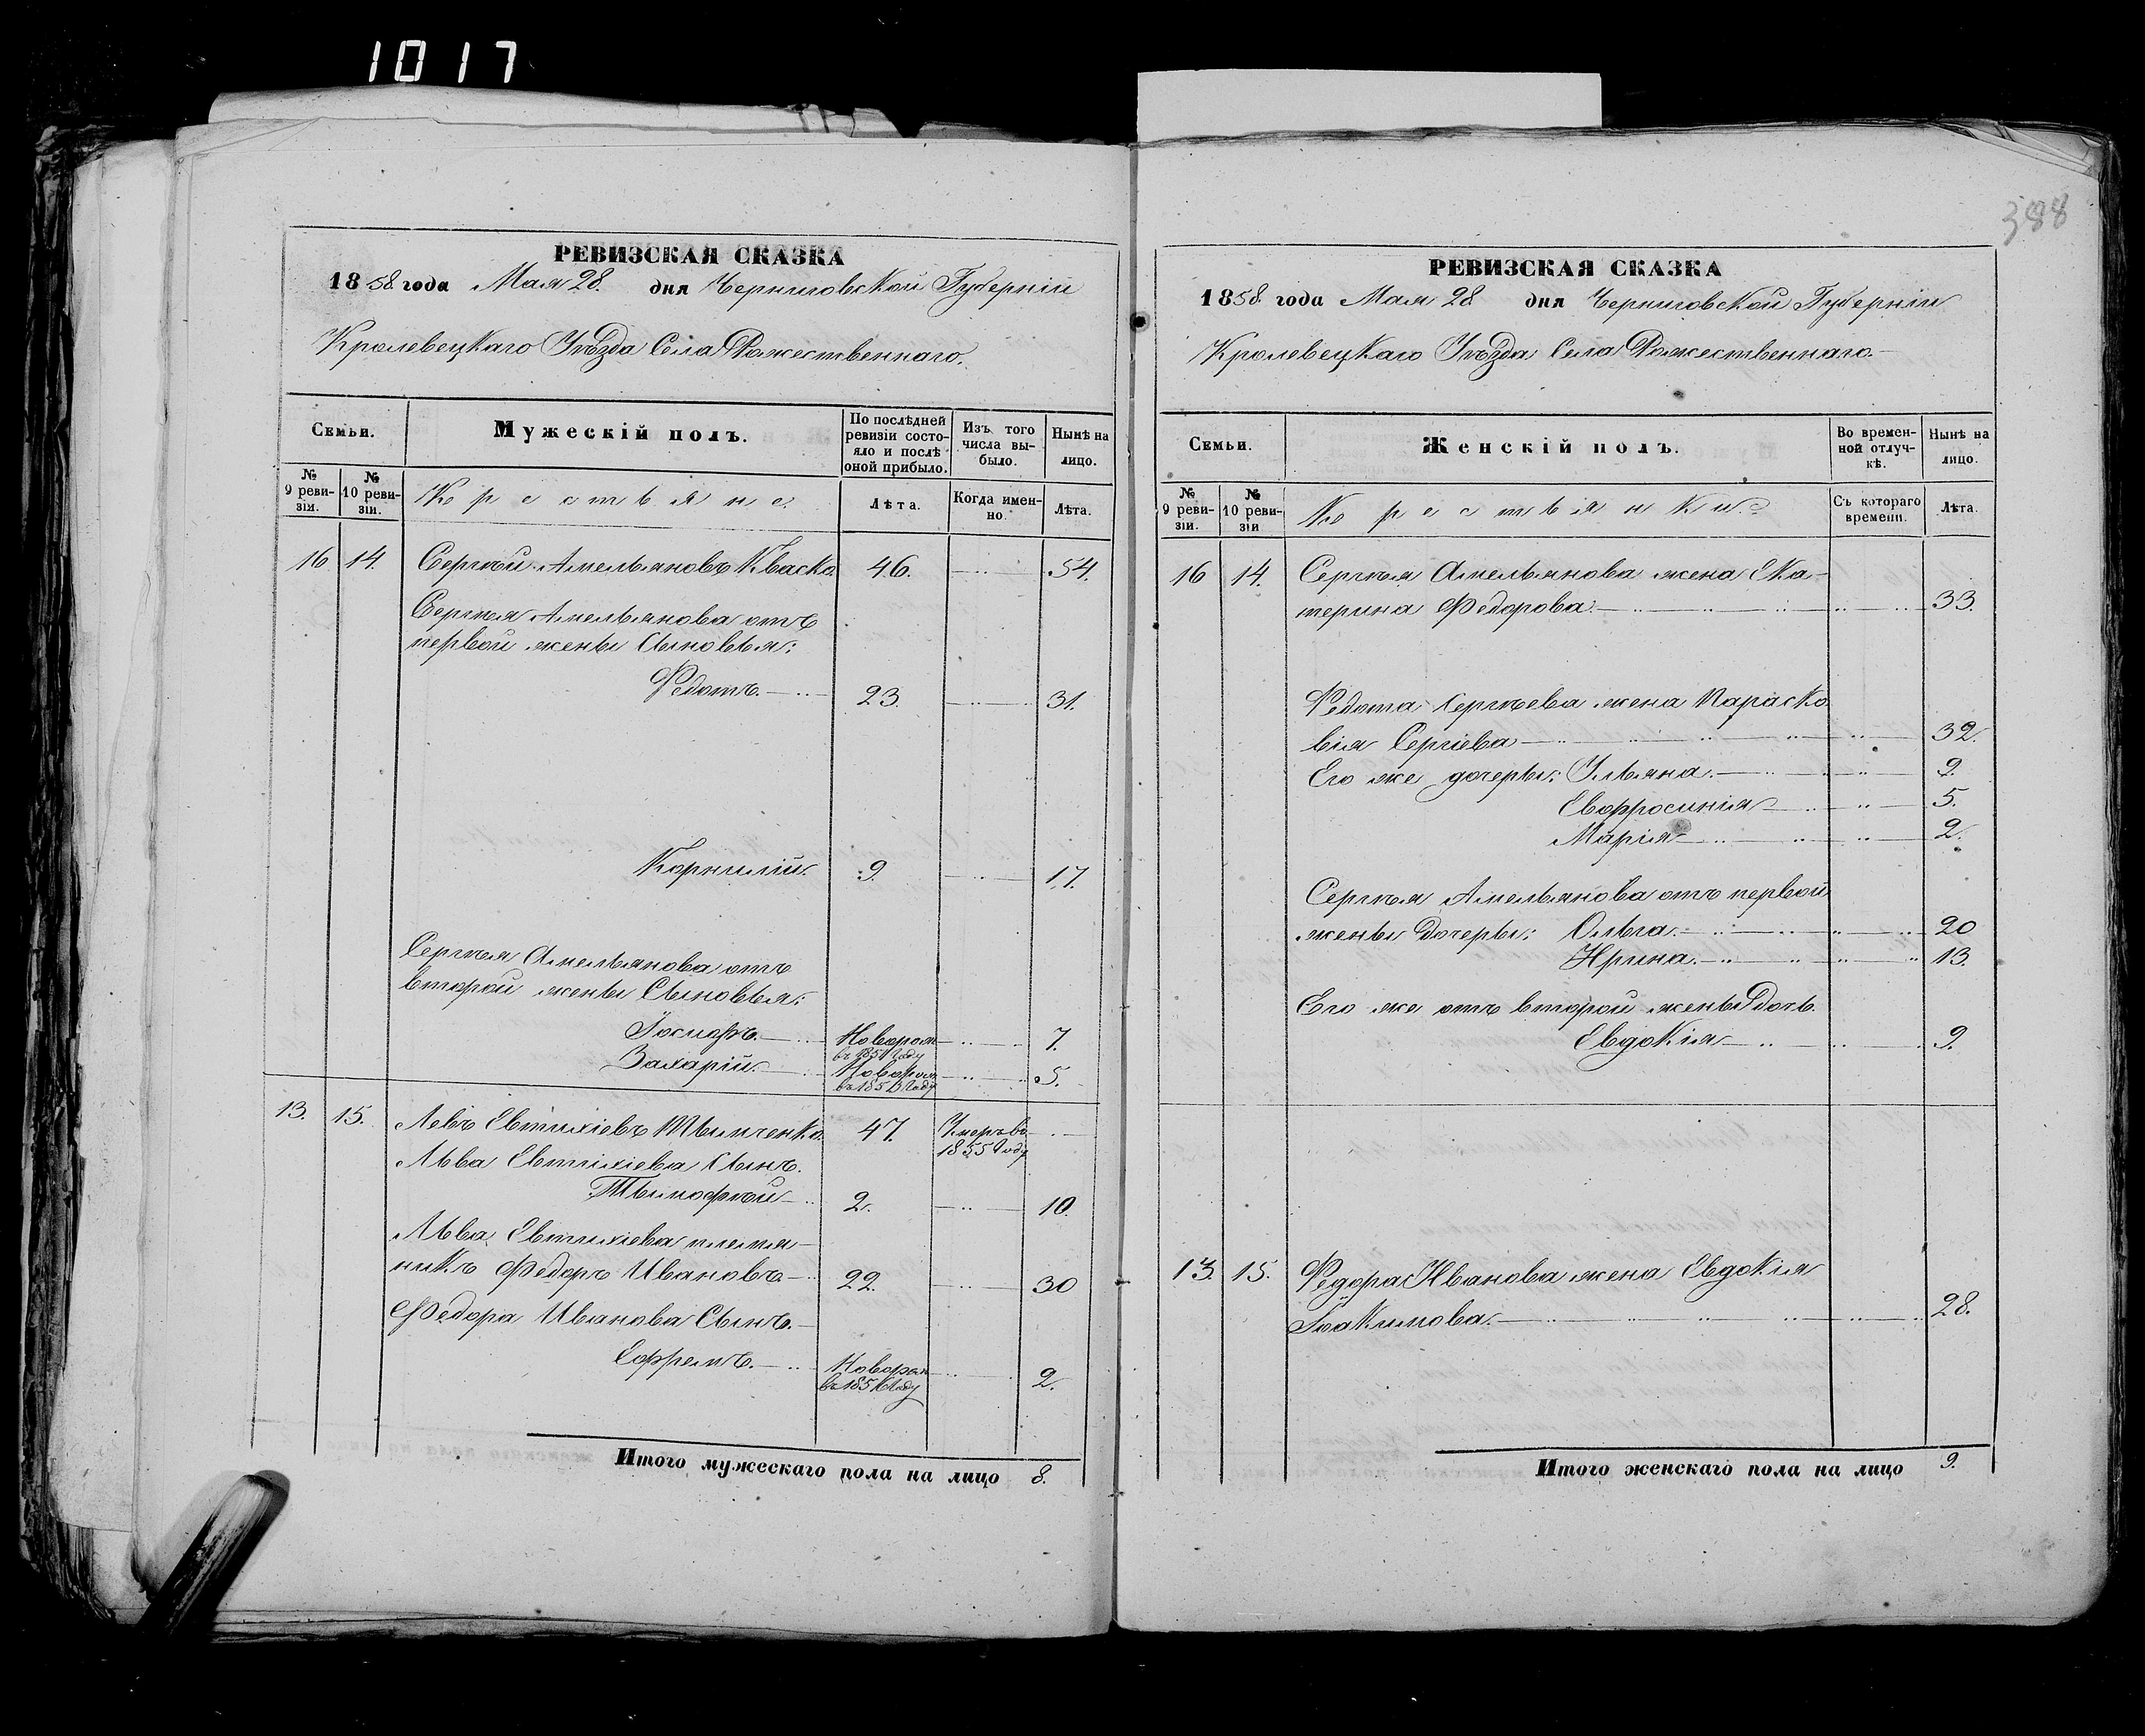 1017
388
РЕВИЗСКАЯ СКАЗКА
1858 года Мая 28. дня Черниговской Губерніи
Кролевецкаго Уѣзда Села Рожественнаго.
Семьи.
Мужескій полъ.
По послѣдней ревизіи состояло и послѣ оной прибыло.
Изъ того числа выбыло.
Нынѣ на лицо.
№ 9 ревизіи.
№ 10 ревизіи.
Крестьяне.
Лѣта.
Когда именно.
Лѣта.
16 14. Сергѣй Амельяновъ Кваско. 46. 54.
Сергѣя Амельянова отъ
первой жены Сыновья:
Федотъ. 23. 31.
Корнилій. 9. 17.
Сергѣя Амельянова отъ
второй жены Сыновья:
Іосифъ. Новорож 7.
въ 1851 Году
Захарій. Новорож 5.
въ 185 Году
13. 15. Левъ Евтихіевъ 47. Умеръ въ
1855 Году
Льва Евтихіева Сынъ.
Тимофѣй 2. 10.
Льва Евтихіева племя-
никъ Федоръ Ивановъ 22. 30
Федора Иванова Сынъ.
Ефремъ. Новорож 2.
въ 1856 Году
Итого мужескаго пола на лицо 8.
РЕВИЗСКАЯ СКАЗКА
1858 года Мая 28 дня Черниговской Губерніи
Кролевецкаго Уѣзда Села Рожественнаго.
Семьи.
Женскій полъ.
Во временной отлучкѣ.
Нынѣ на лицо.
№ 9 ревизіи.
№ 10 ревизіи
Крестьянки.
Съ котораго времени.
Лѣта.
16 14. Сергѣя Амельянова жена Ека-
терина Федорова. 33.
Федота Сергѣева жена Параско
вія Сергіева 32.
Его же дочеры: Ульяна. 9.
Евфросинія 5.
Марія 2.
Сергѣя Амельянова отъ первой
жены Дочеры: Ольга. 20
Ирина. 13.
Его же отъ второй жены Дочь.
Евдокія 9.
13. 15. Федора Иванова жена Евдокія
Іоакимова. 28.
Итого женскаго пола на лицо 9.